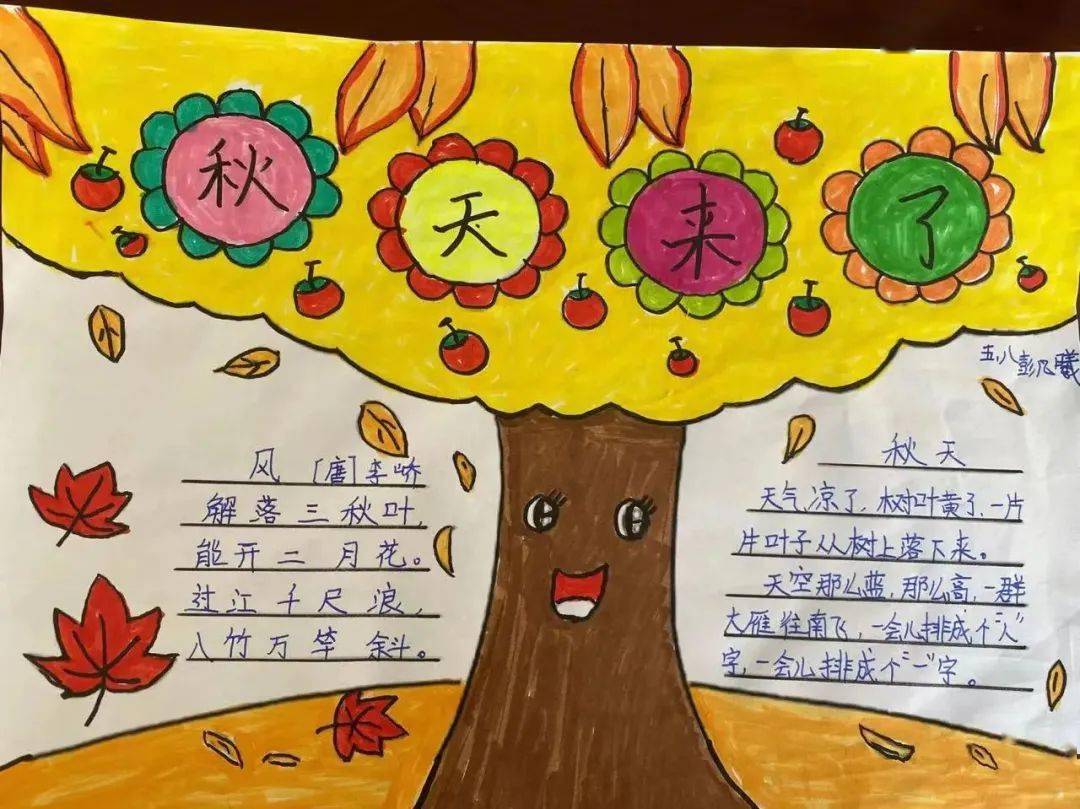 秋天来了
五.八彭
风 [唐]李峤
解落三秋叶,
能开二月花。
过江千尺浪,
入竹万竿斜。
秋天
天气凉了,树叶黄了,一片
片叶子从树上落下来。
天空那么蓝,那么高,一群
大雁往南飞,一会儿排成个“人”
字,一会儿排成个“一”字。